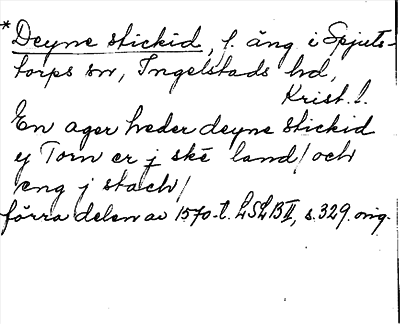 * Deyne stickid, f. äng i Spjuts-
torps sn, Ingelstads hd,
Krist. l.
En ager heder deyne stickid
y Torn er j ske land / och
eng j stach /
förra delen av 1570-t. LSLB II, s. 329. orig.